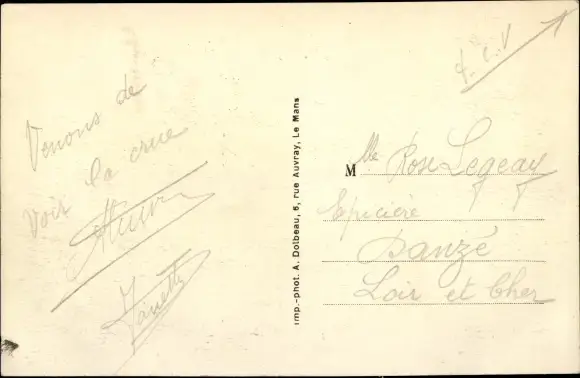 Venons de
voir la crue
Imp.-phot. A. Dolbeau, 5, rue Auvray, Le Mans
M lle Rose Legeay
Epicière
Danzé
Loir et Cher